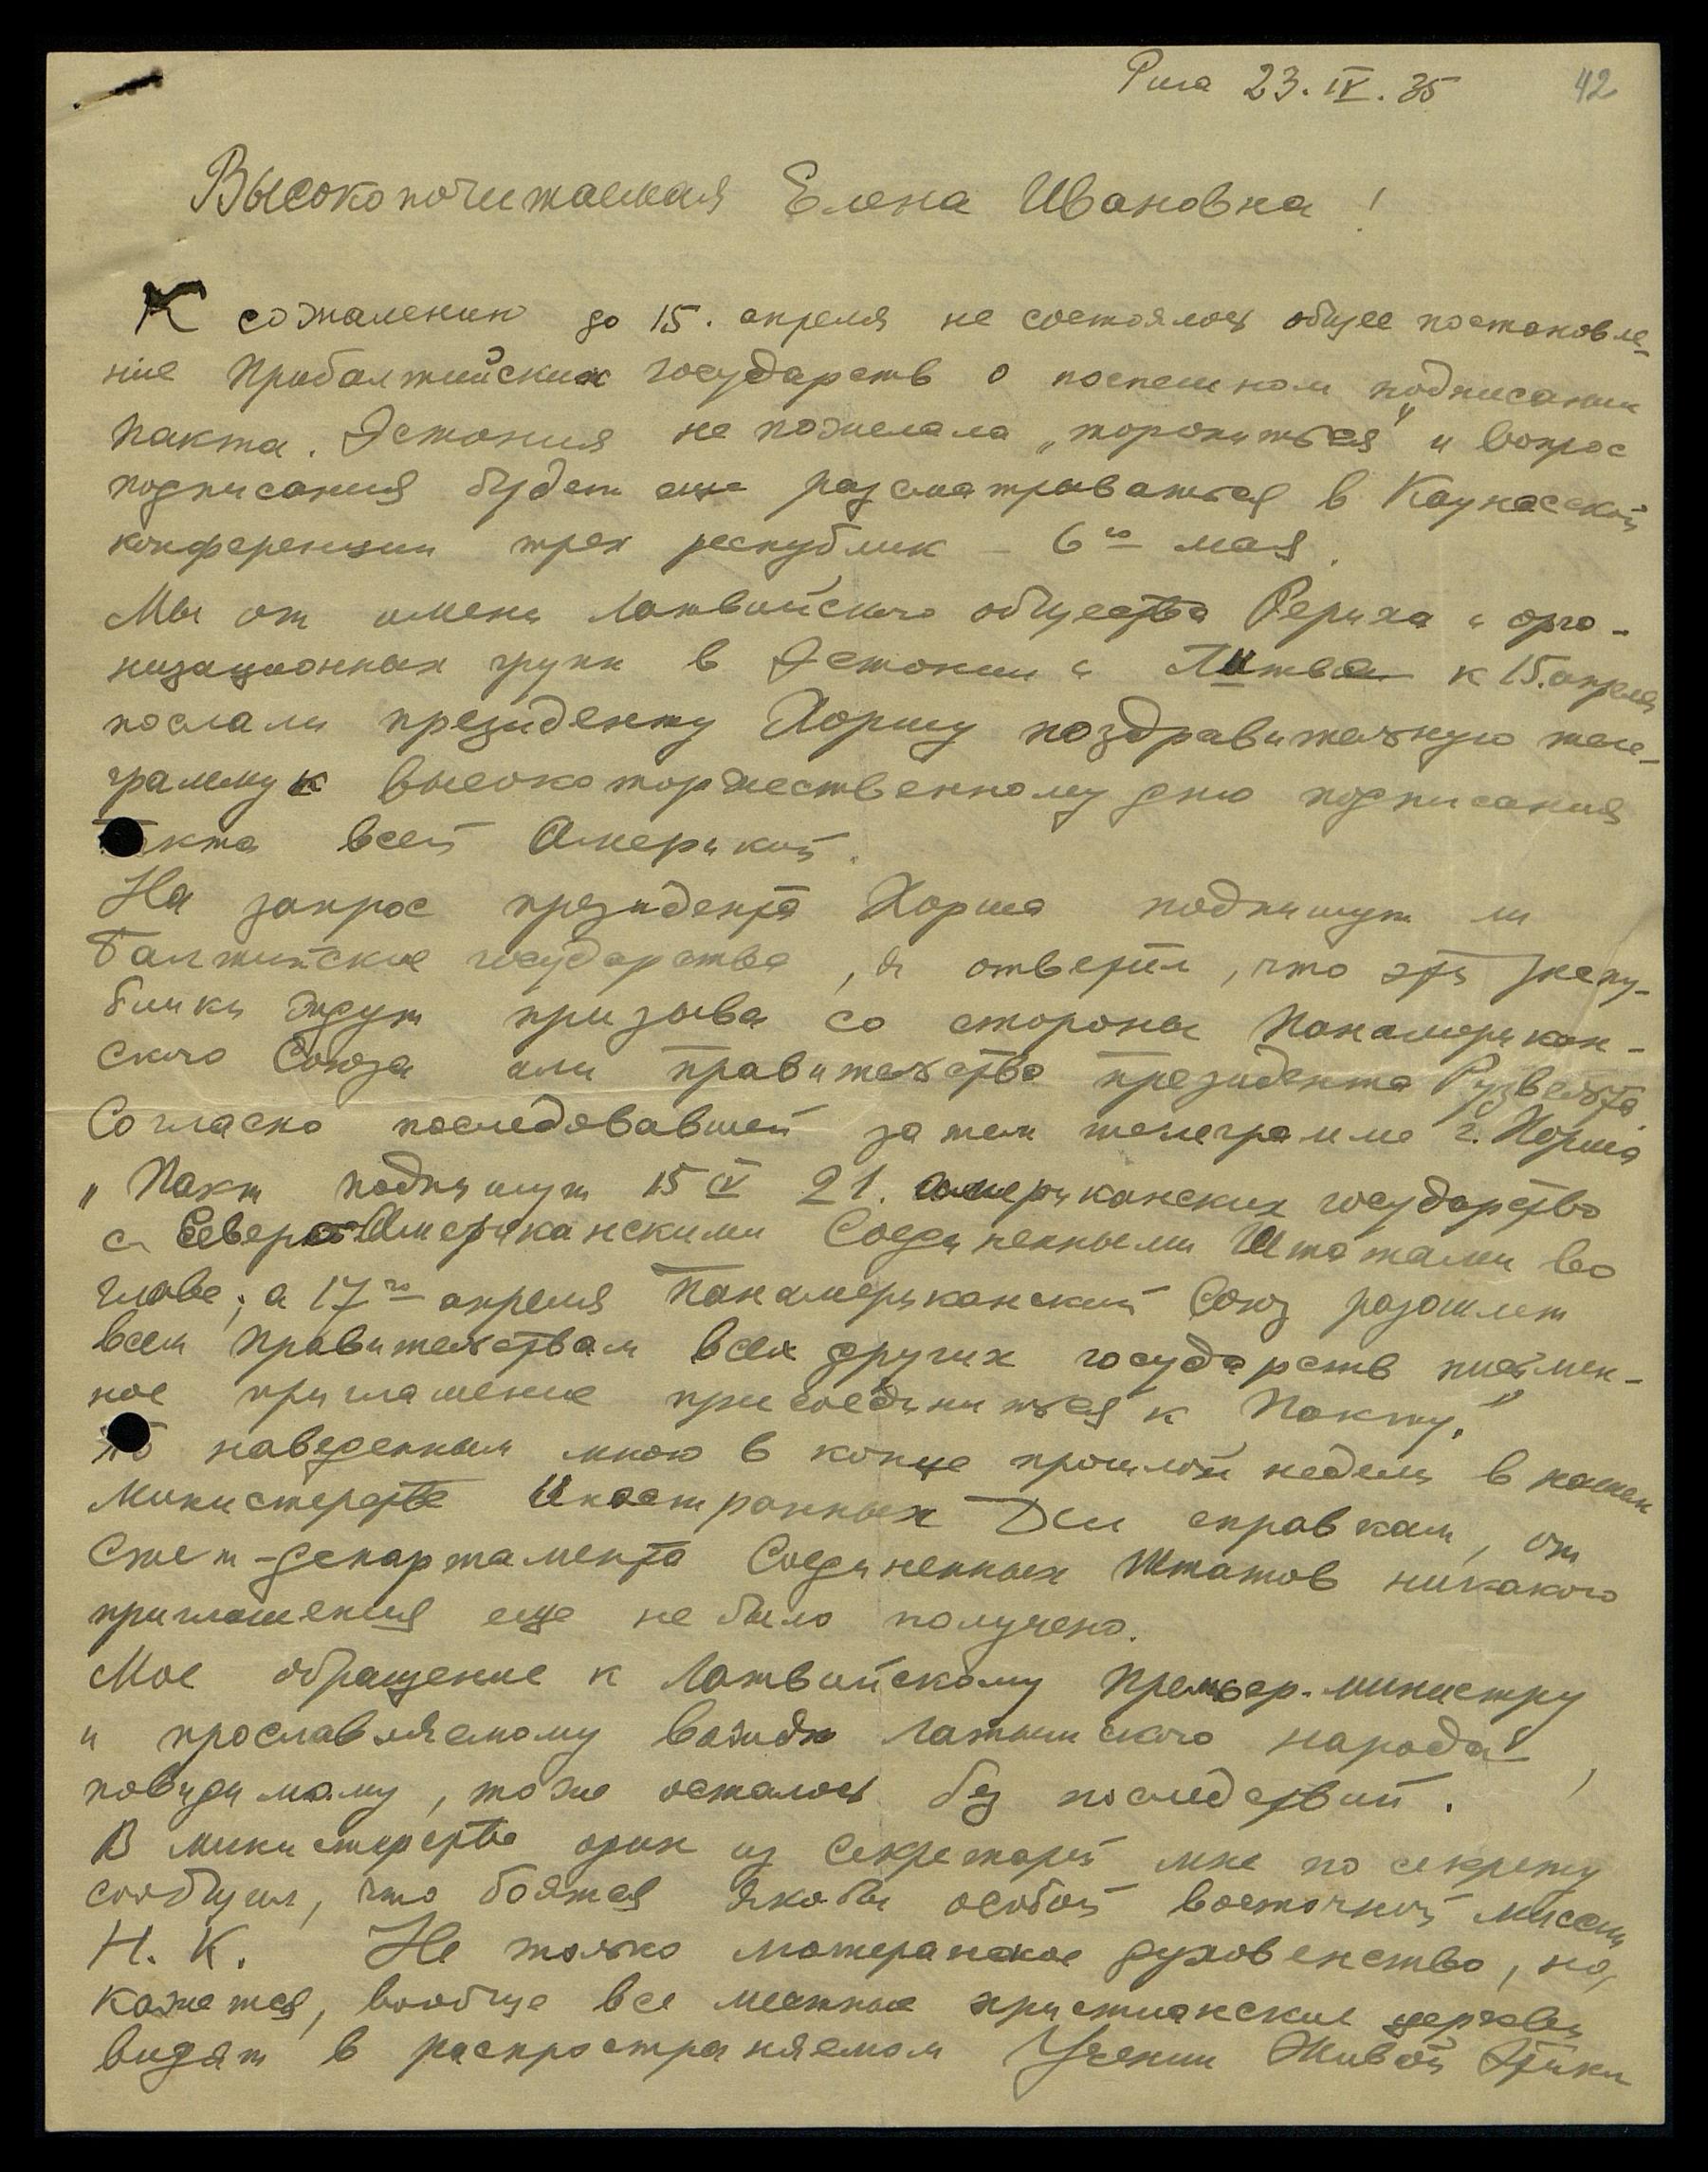 Рига 23.IV.35
42
Высокопочитаемая Елена Ивановна!
К сожалению до 15. апреля не состоялось общее постановле-
ние Прибалтийских государств о поспешном подписании
Пакта. Эстония не пожелала „торопиться" и вопрос
подписания будет еще разсматриваться в Каунасской
конференции трех республик – 6го мая.
Мы от имени Латвийского общества Рериха и орга-
низационных групп в Эстонии и Литве к 15. апреля
послали президенту Хоршу поздравительную теле-
грамму к высокоторжественному дню подписания
Пакта всей Америкой.
На запрос президента Хорша подпишут ли
Балтийские государства, я ответил, что эти респу-
блики ждут призыва со стороны Панамерикан-
ского Союза или правительства президента Рузвельта
Согласно последовавшей затем телеграмме г. Хорша
„Пакт подпишут 15 IV 21. американских государство
с Северо-Американскими Соединенными Штатами во
главе; а 17го апреля Панамериканский Союз разошлет
всем правительствам всех других государств письмен-
ное приглашение присоединиться к Пакту."
По наведенным мною в конце прошлой недели в нашем
Министерстве Иностранных Дел справкам, от
Стет-департамента Соединенных Штатов никакого
приглашения еще не было получено.
Мое обращение к Латвийскому Премьер-министру
и прославляемому вождю латышского народа,
повидимому, тоже осталось без последствий.
В министерстве один из секретарей мне по секрету
сообщил, что боятся якобы особой восточной миссии
Н. К. Не только лютеранское духовенство, но,
кажется, вообще все местные христианские церкви
видят в распространяемом Учении Живой Этики